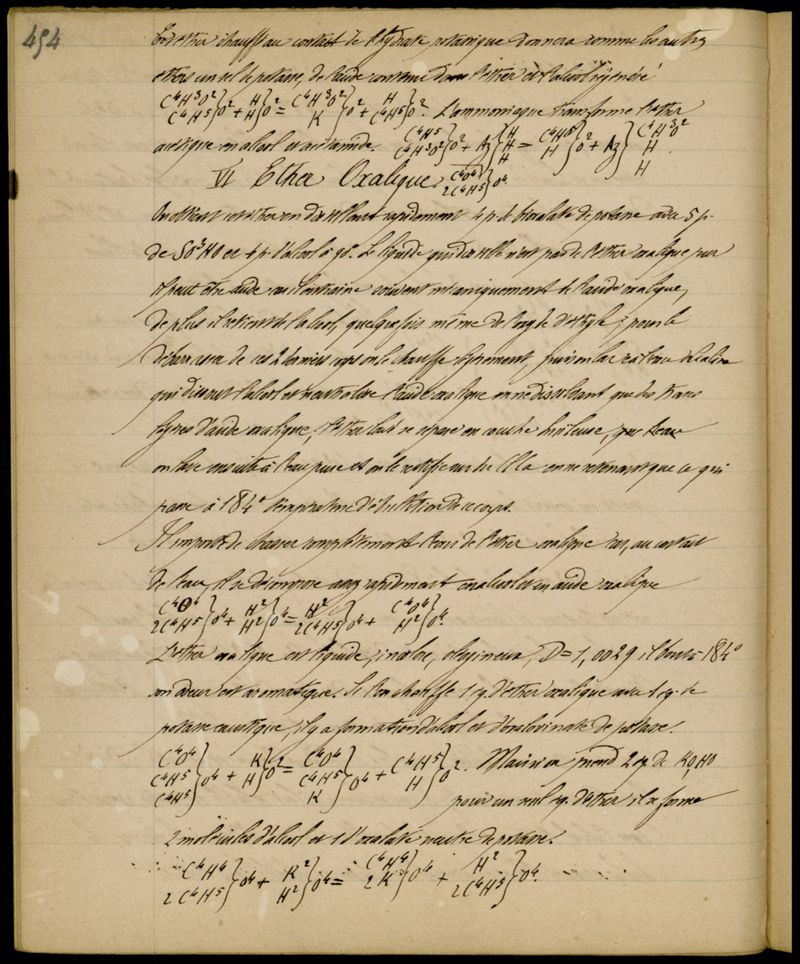 454
Cet éther chauffé au contact de l'hydrate potassique donnera comme les autres
éthers un sel de potasse, de l'acide contenu dans l'éther et l'alcool régénéré
C⁴H³O² C⁴H⁵ } O² + H H } O² = C⁴H³O² K } O² + H C⁴H⁵ } O². L'ammoniaque transforme l'éther
acétique en alcool et acétamide. C⁴H⁵ C⁴H³O² } O² + Az { H H H = C⁴H⁵ H } O² + Az } C⁴H³O² H H
VI Ether Oxalique C⁴O⁴ 2C⁴H⁵ } O⁴
On obtient cet éther en distillant rapidement 4 p. de bioxalate de potasse avec 5 p.
de SO³HO et 4 p. d'alcool à 90°. Le liquide qui distille n'est pas de l'éther oxalique pur
il peut être acide car il entraîne souvent mécaniquement de l'acide oxalique,
de plus il retient de l'alcool, quelquefois même de l'oxyde d'éthyle ; pour le
débarrasser de ces 2 derniers corps on le chauffe légèrement, puis on lave
qui dissout l'alcool et neutralise l'acide oxalique en ne dissolvant que des traces
d'acide oxalique, l'éther lavé se sépare en couche huileuse,
on lave ensuite à l'eau pure et on le rectifie sur du ClCa en ne retenant que ce qui
passe à 184° température d'ébullition de ce corps.
Il importe de chasser complètement l'eau de l'éther oxalique car, au contact
de l'eau, il se décompose assez rapidement en alcool et en acide oxalique
C⁴O⁴ 2C⁴H⁵ } O⁴ + H² H² } O⁴ = H² 2C⁴H⁵ } O⁴ + C⁴O⁴ H² } O⁴.
L'éther oxalique est liquide, incolore, oléagineux, D = 1,0029 il bout à 184°
son odeur est aromatique. Si l'on chauffe 1 éq. d'éther oxalique avec 1 éq. de
potasse caustique, il y a formation d'alcool et d'oxalovinate de potasse.
C⁴O⁴ C⁴H⁵ C⁴H⁵ } O⁴ + K H } O² = C⁴O⁴ C⁴H⁵ K } O⁴ + C⁴H⁵ H } O². Mais si on prend 2 éq. de KO,HO
pour un seul éq. d'éther il se forme
2 molécules d'alcool et 1 d'oxalate neutre de potasse.
C⁴H⁴ 2C⁴H⁵ } O⁴ + K² H² } O⁴ = C⁴H⁴ 2K } O⁴ + H² 2C⁴H⁵ } O⁴.